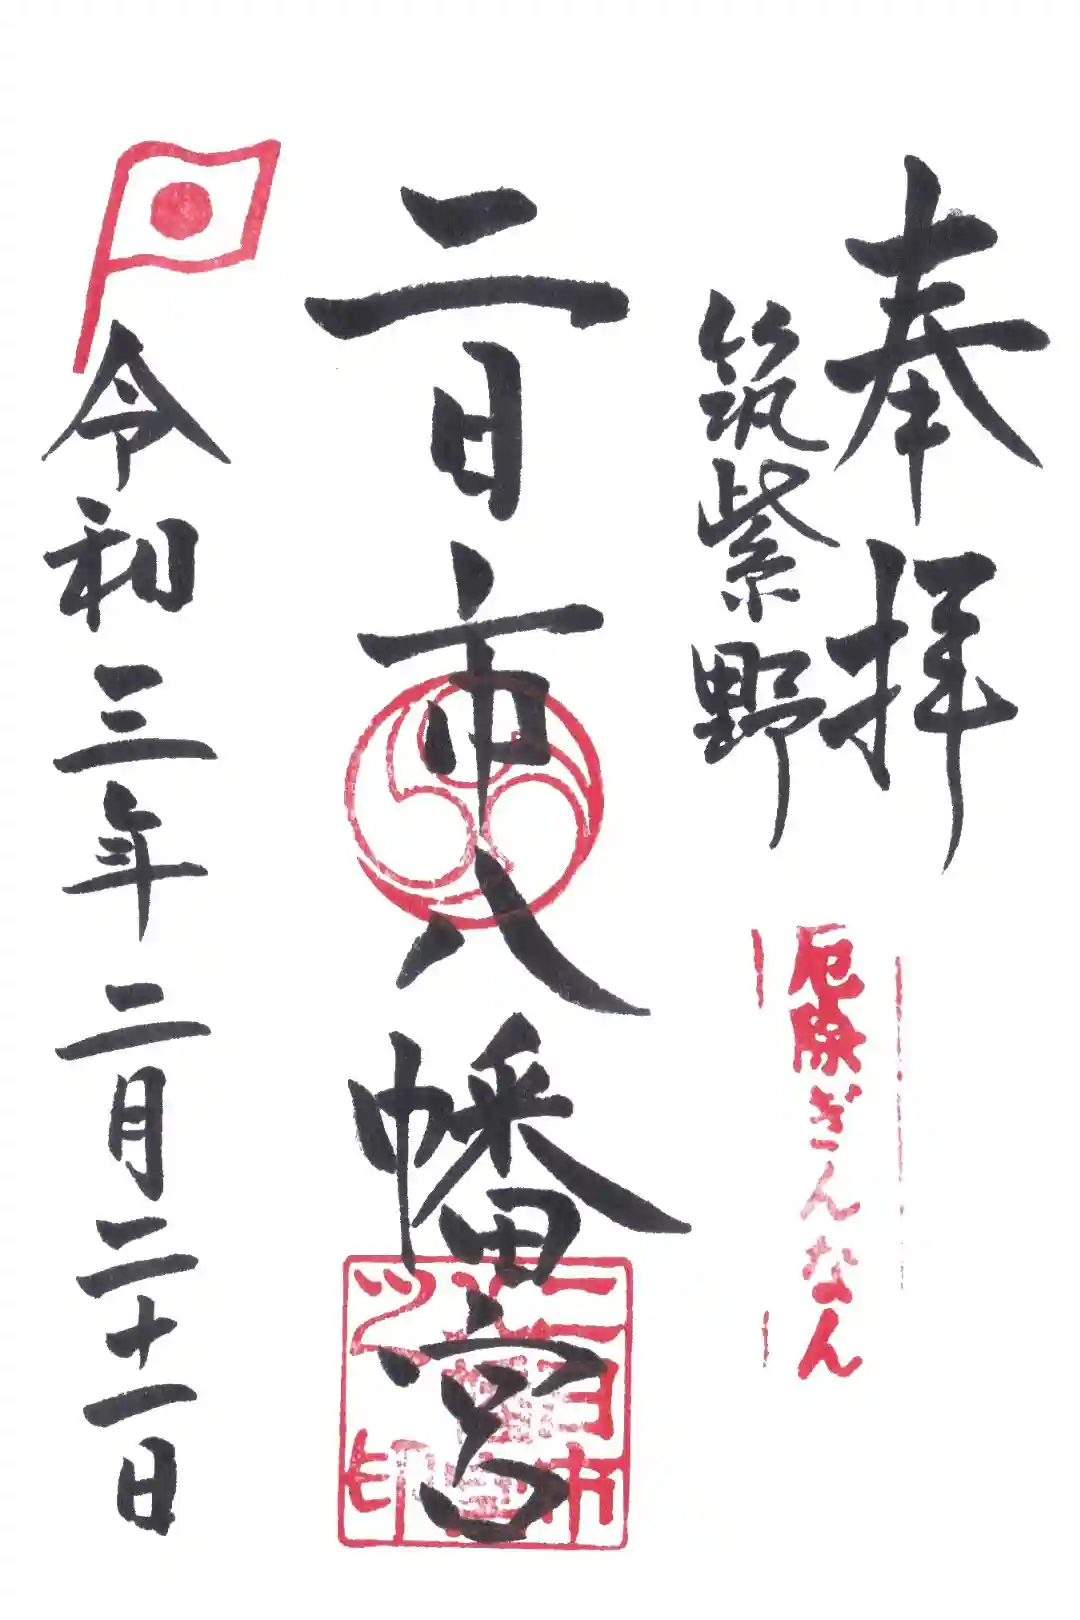 奉拝
筑紫野
厄除ぎんなん
二日市八幡宮
二日市八幡宮之印
令和三年二月二十一日